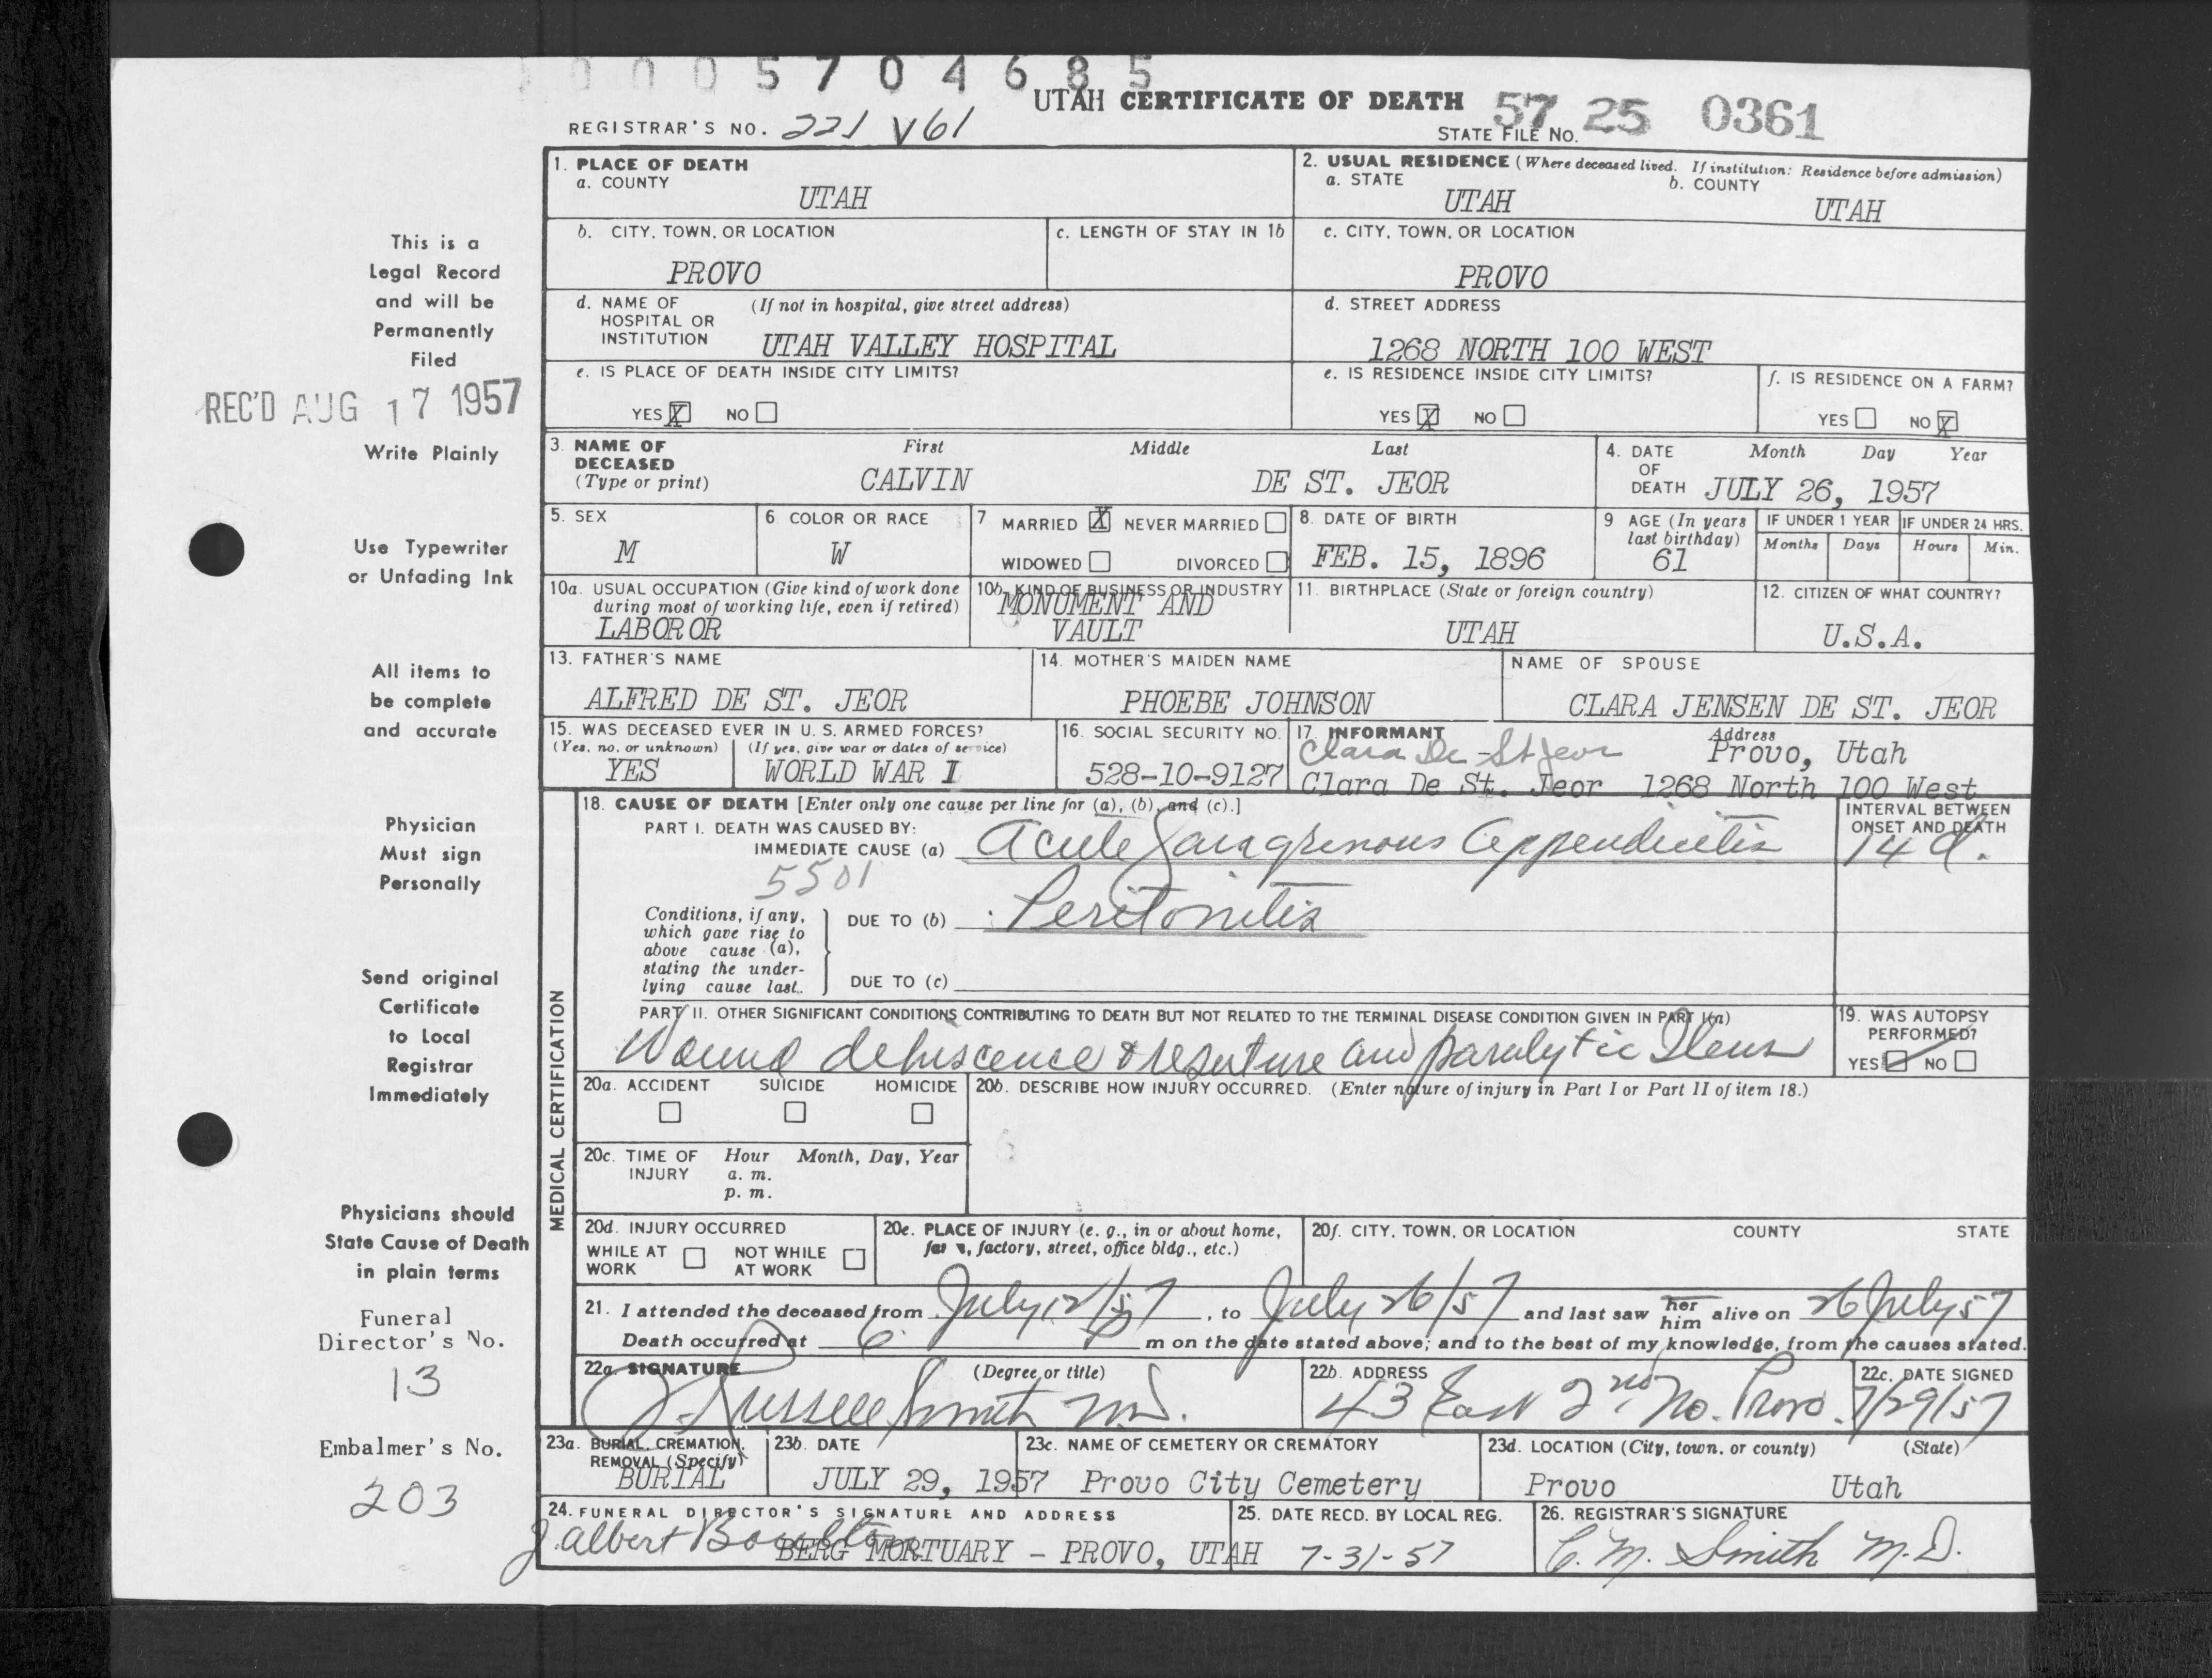 0 0 0 5 7 0 4 6 8 5
UTAH CERTIFICATE OF DEATH
REGISTRAR'S NO. 221 V61
STATE FILE NO. 57 25 0361
This is a
Legal Record
and will be
Permanently
Filed
REC'D AUG 17 1957
Write Plainly
Use Typewriter
or Unfading Ink
All items to
be complete
and accurate
Physician
Must sign
Personally
Send original
Certificate
to Local
Registrar
Immediately
Physicians should
State Cause of Death
in plain terms
Funeral
Director's No.
13
Embalmer's No.
203
1. PLACE OF DEATH
a. COUNTY
UTAH
2. USUAL RESIDENCE (Where deceased lived. If institution: Residence before admission)
a. STATE b. COUNTY
UTAH UTAH
b. CITY, TOWN, OR LOCATION
PROVO
c. LENGTH OF STAY IN 1b
c. CITY, TOWN, OR LOCATION
PROVO
d. NAME OF (If not in hospital, give street address)
HOSPITAL OR
INSTITUTION UTAH VALLEY HOSPITAL
d. STREET ADDRESS
1268 NORTH 100 WEST
e. IS PLACE OF DEATH INSIDE CITY LIMITS?
YES X NO
e. IS RESIDENCE INSIDE CITY LIMITS?
YES X NO
f. IS RESIDENCE ON A FARM?
YES NO X
3. NAME OF First Middle Last
DECEASED
(Type or print) CALVIN DE ST. JEOR
4. DATE Month Day Year
OF
DEATH JULY 26, 1957
5. SEX
M
6 COLOR OR RACE
W
7 MARRIED X NEVER MARRIED
WIDOWED DIVORCED
8. DATE OF BIRTH
FEB. 15, 1896
9 AGE (In years
last birthday)
61
IF UNDER 1 YEAR IF UNDER 24 HRS.
Months Days Hours Min.
10a. USUAL OCCUPATION (Give kind of work done
during most of working life, even if retired)
LABOROR
10b. KIND OF BUSINESS OR INDUSTRY
MONUMENT AND
VAULT
11. BIRTHPLACE (State or foreign country)
UTAH
12. CITIZEN OF WHAT COUNTRY?
U.S.A.
13. FATHER'S NAME
ALFRED DE ST. JEOR
14. MOTHER'S MAIDEN NAME
PHOEBE JOHNSON
NAME OF SPOUSE
CLARA JENSEN DE ST. JEOR
15. WAS DECEASED EVER IN U. S. ARMED FORCES?
(Yes, no, or unknown) (If yes, give war or dates of service)
YES WORLD WAR I
16. SOCIAL SECURITY NO.
528-10-9127
17. INFORMANT Address
Clara De St Jeor Provo, Utah
Clara De St. Jeor 1268 North 100 West
MEDICAL CERTIFICATION
18. CAUSE OF DEATH [Enter only one cause per line for (a), (b), and (c).]
PART I. DEATH WAS CAUSED BY:
IMMEDIATE CAUSE (a) Acute Gangrenous Appendicitis
INTERVAL BETWEEN
ONSET AND DEATH
14 d.
5501
Conditions, if any,
which gave rise to
above cause (a),
stating the under-
lying cause last.
DUE TO (b) Peritonitis
DUE TO (c)
PART II. OTHER SIGNIFICANT CONDITIONS CONTRIBUTING TO DEATH BUT NOT RELATED TO THE TERMINAL DISEASE CONDITION GIVEN IN PART I(a)
Wound dehiscence & resuture and paralytic Ileus
19. WAS AUTOPSY
PERFORMED?
YES NO
20a. ACCIDENT SUICIDE HOMICIDE
20b. DESCRIBE HOW INJURY OCCURRED. (Enter nature of injury in Part I or Part II of item 18.)
20c. TIME OF Hour Month, Day, Year
INJURY a. m.
p. m.
20d. INJURY OCCURRED
WHILE AT NOT WHILE
WORK AT WORK
20e. PLACE OF INJURY (e. g., in or about home,
farm, factory, street, office bldg., etc.)
20f. CITY, TOWN, OR LOCATION COUNTY STATE
21. I attended the deceased from July 12/57, to July 26/57 and last saw her him alive on 26 July 57
Death occurred at 6 p m on the date stated above; and to the best of my knowledge, from the causes stated.
22a. SIGNATURE (Degree or title)
J. Russell Smith M.D.
22b. ADDRESS
43 East 2nd No. Provo.
22c. DATE SIGNED
7/29/57
23a. BURIAL, CREMATION,
REMOVAL (Specify)
BURIAL
23b. DATE
JULY 29, 1957
23c. NAME OF CEMETERY OR CREMATORY
Provo City Cemetery
23d. LOCATION (City, town, or county) (State)
Provo Utah
24. FUNERAL DIRECTOR'S SIGNATURE AND ADDRESS
J. Albert Boulton
BERG MORTUARY - PROVO, UTAH
25. DATE RECD. BY LOCAL REG.
7-31-57
26. REGISTRAR'S SIGNATURE
C. M. Smith M.D.